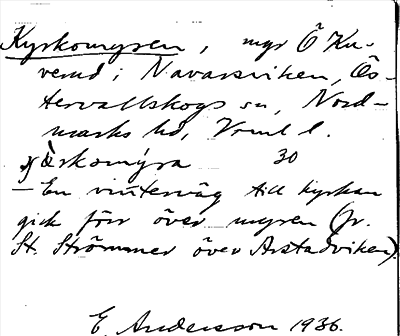 Kyrkomyren, myr Ö Ku-
verud i Navarsviken, Ös-
tervallskogs sn, Nord-
marks hd, Vrml l.
30
– En vinterväg till kyrkan
gick förr över myren (jr.
St. Strömmer över Årstadviken).
E. Andersson 1936.